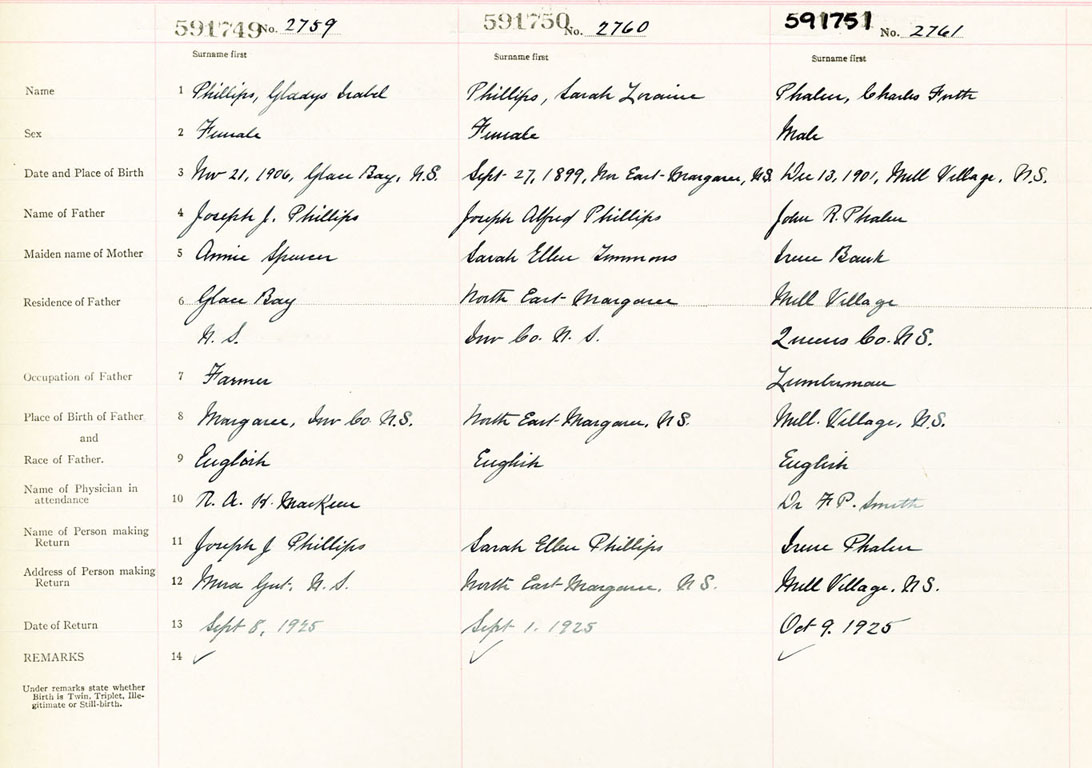 591749 No. 2759 591750 No. 2760 591751 No. 2761
Surname first Surname first Surname first
Name 1 Phillips, Gladys Isabel Phillips, Sarah Loraine Phalen, Charles Firth
Sex 2 Female Female Male
Date and Place of Birth 3 Nov 21, 1906, Glace Bay, N.S. Sept 27, 1899, Nor East Margaree, N.S. Dec 13, 1901, Mill Village, N.S.
Name of Father 4 Joseph J. Phillips Joseph Alfred Phillips John R. Phalen
Maiden name of Mother 5 Annie Spencer Sarah Ellen Timmons Irene Bank
Residence of Father 6 Glace Bay North East Margaree Mill Village
N. S. Inv Co. N. S. Queens Co. N.S.
Occupation of Father 7 Farmer Lumberman
Place of Birth of Father 8 Margaree, Inv Co. N.S. North East Margaree, N.S. Mill Village, N.S.
and
Race of Father. 9 English English English
Name of Physician in
attendance 10 R. A. H. MacKeen Dr F P. Smith
Name of Person making
Return 11 Joseph J Phillips Sarah Ellen Phillips Irene Phalen
Address of Person making
Return 12 Mira Gut. N. S. North East Margaree, N.S. Mill Village, N.S.
Date of Return 13 Sept 8, 1925 Sept 1. 1925 Oct 9. 1925
REMARKS 14 ✓ ✓ ✓
Under remarks state whether
Birth is Twin, Triplet, Ille-
gitimate or Still-birth.